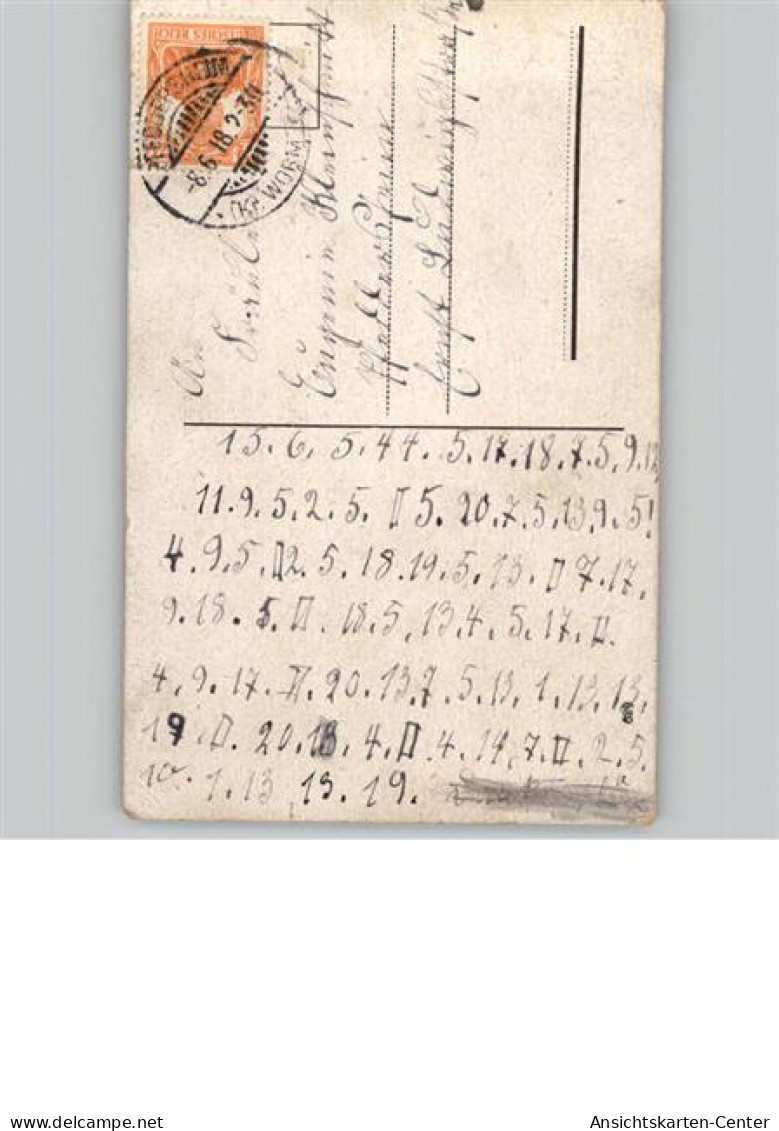 DEUTSCHES REICH
-8.6.18.2-3N
(Kr. WORMS)
An
Fräulein
Eugenie Kleinschmitt
15. 6. 5. 4 4. 5. 17. 18. 7. 5. 9. 12
11. 9. 5. 2. 5. II 5. 20. 7. 5. 13. 9. 5!
4. 9. 5. II 2. 5. 18. 19. 5. 13. II 7. 17.
9. 18. 5. II. 18. 5. 13. 4. 5. 17. II.
4. 9. 17. II. 20. 13. 7. 5. 13. 1. 13. 13.
19. II. 20. 13. 4. II. 4. 14. 7. II. 2. 5.
10. 1. 13 13. 19.
Ansichtskarten-Center